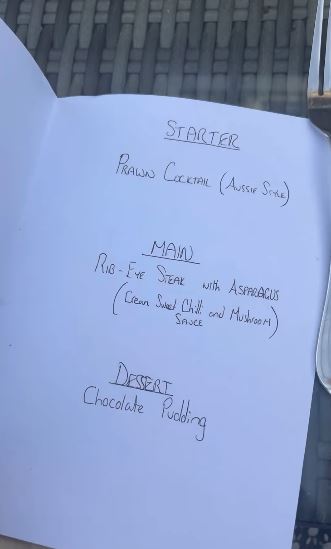 STARTER
PRAWN COCKTAIL (AUSSIE STYLE)
MAIN
RIB-EYE STEAK WITH ASPARAGUS
(Cream Sweet Chilli and Mushroom)
SAUCE
DESSERT
Chocolate Pudding